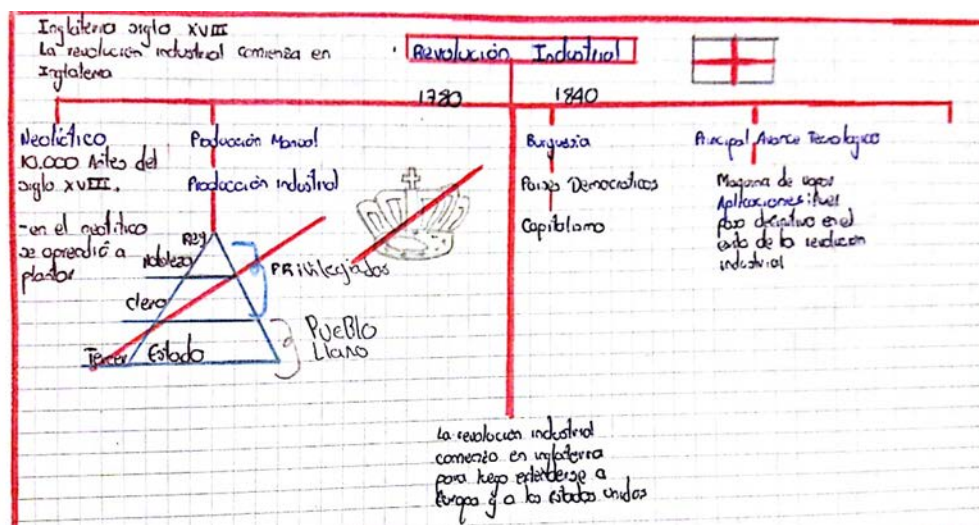 Inglaterra siglo XVIII
La revolución industrial comienza en
Inglaterra
Revolución Industrial
1780
1840
Neolíctico
10.000 Antes del
siglo XVIII.
-en el neolitico
se aprendió a
plantar
Producción Manual
Producción industrial
Rey
Nobleza
clero
Tercer Estado
PRiVilegiados
PUEBLO
LLANO
Burguesia
Paises Democraticos
Capitalismo
Principal Avance Tecnologico
Maquina de vapor
Aplicaciones: fue
paso decisivo en el
exito de la revolución
industrial
La revolución industrial
comenzo en inglaterra
para luego extenderse a
Europa y a los estados unidos